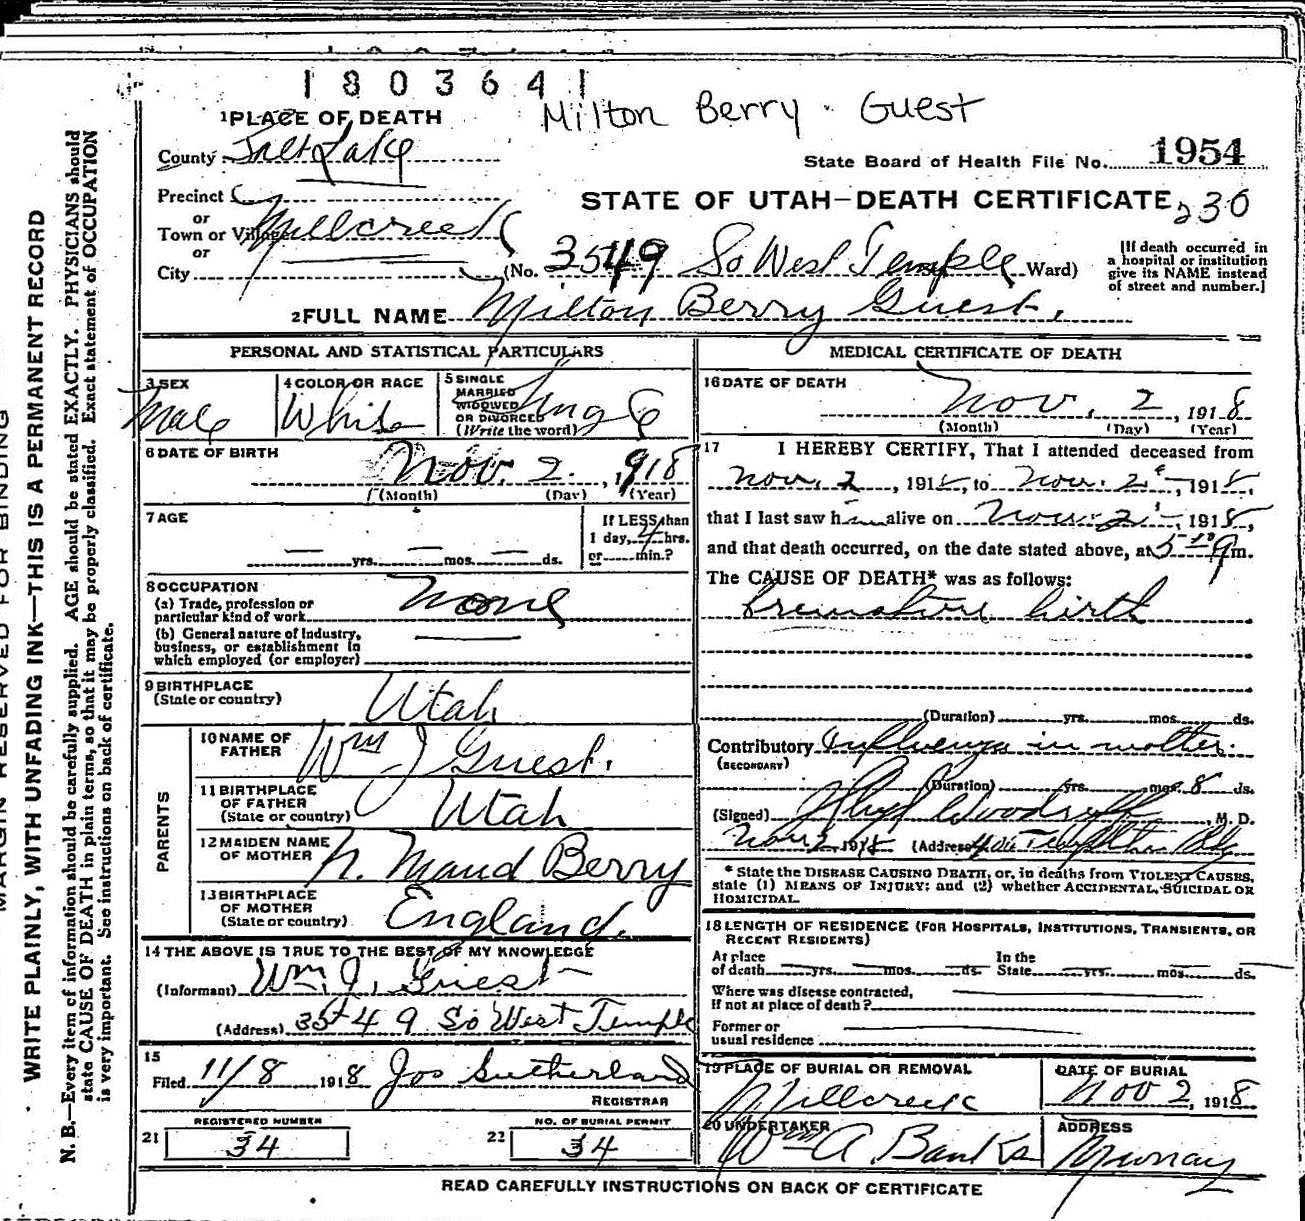 1803641
Milton Berry Guest
1 PLACE OF DEATH
County Salt Lake
State Board of Health File No. 1954
Precinct
or
Town or Village Millcreek
or
City
STATE OF UTAH—DEATH CERTIFICATE 230
(No. 3549 So West Temple Ward)
[If death occurred in
a hospital or institution
give its NAME instead
of street and number.]
2 FULL NAME Milton Berry Guest.
PERSONAL AND STATISTICAL PARTICULARS
3 SEX
Male
4 COLOR OR RACE
White
5 SINGLE
MARRIED
WIDOWED
OR DIVORCED
(Write the word)
Single
6 DATE OF BIRTH
Nov. 2. , 1918
(Month) (Day) (Year)
7 AGE
— yrs. — mos. — ds.
If LESS than
1 day, 4 hrs.
or min.?
8 OCCUPATION
(a) Trade, profession or
particular kind of work
None
(b) General nature of Industry,
business, or establishment in
which employed (or employer)
9 BIRTHPLACE
(State or country)
Utah
PARENTS
10 NAME OF
FATHER
Wm J Guest.
11 BIRTHPLACE
OF FATHER
(State or country)
Utah
12 MAIDEN NAME
OF MOTHER
N. Maud Berry
13 BIRTHPLACE
OF MOTHER
(State or country)
England.
14 THE ABOVE IS TRUE TO THE BEST OF MY KNOWLEDGE
(Informant) Wm. J. Guest
(Address) 3549 So West Temple
15
Filed 11/8 1918 Jos Sutherland
REGISTRAR
REGISTERED NUMBER
21 34
NO. OF BURIAL PERMIT
22 34
MEDICAL CERTIFICATE OF DEATH
16 DATE OF DEATH
Nov. 2, 1918
(Month) (Day) (Year)
17 I HEREBY CERTIFY, That I attended deceased from
Nov. 2, 1918, to Nov. 2, 1918,
that I last saw him alive on Nov. 2, 1918,
and that death occurred, on the date stated above, at m.
The CAUSE OF DEATH* was as follows:
Premature birth
(Duration) yrs. mos. ds.
Contributory Influenza in mother.
(SECONDARY)
(Duration) yrs. mos. 8 ds.
(Signed) Woodruff, M. D.
Nov 2 1918 (Address)
* State the DISEASE CAUSING DEATH, or, in deaths from VIOLENT CAUSES,
state (1) MEANS OF INJURY; and (2) whether ACCIDENTAL, SUICIDAL OR
HOMICIDAL.
18 LENGTH OF RESIDENCE (FOR HOSPITALS, INSTITUTIONS, TRANSIENTS, OR
RECENT RESIDENTS)
At place
of death yrs. mos. ds.
In the
State yrs. mos. ds.
Where was disease contracted,
if not at place of death?
Former or
usual residence
19 PLACE OF BURIAL OR REMOVAL
Millcreek
DATE OF BURIAL
Nov 2, 1918
20 UNDERTAKER
Wm A. Banks
ADDRESS
Murray
READ CAREFULLY INSTRUCTIONS ON BACK OF CERTIFICATE
MARGIN RESERVED FOR BINDING
WRITE PLAINLY, WITH UNFADING INK—THIS IS A PERMANENT RECORD
N. B.—Every item of information should be carefully supplied. AGE should be stated EXACTLY. PHYSICIANS should
state CAUSE OF DEATH in plain terms, so that it may be properly classified. Exact statement of OCCUPATION
is very important. See instructions on back of certificate.